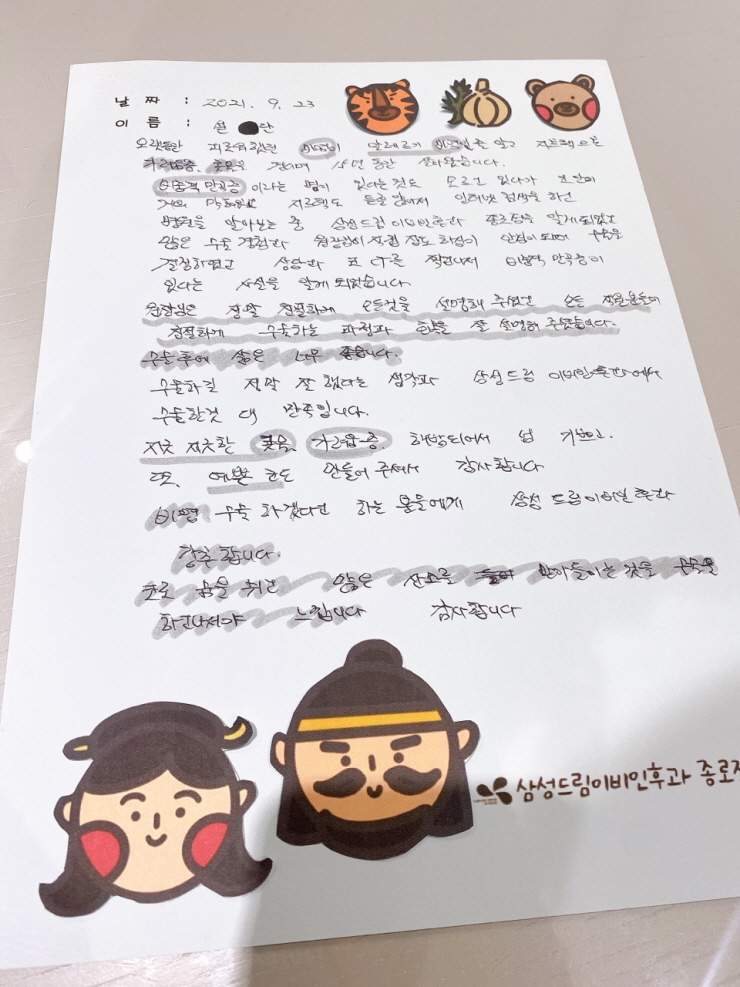 날 짜 : 2021. 9. 23
이 름 : 설 란
오랫동안 알레르기 비염을 앓고 지르텍으로
가려움증, 콧물을 동안 살아왔습니다.
비중격 만곡증 이라는 병이 있다는 것도 모르고 있다가
거의 지르텍도 인터넷 검색을 하고
병원을 알아보는 중 삼성드림이비인후과 종로점을 알게되었고
많은 수술 경험과 원장님이 직접 집도 하심이 안심이 되어 수술을
결정하였고 상담과 코 CT를 찍고나서 비중격 만곡증이
있다는 사실을 알게 되었습니다.
원장님은 정말 친절하게 모든것을 설명해 주셨고 모든 직원분들이
친절하게 수술하는 과정과 잘 설명해 주셨습니다.
수술후에 삶은 너무 좋습니다.
수술하길 정말 잘 했다는 생각과 삼성드림 이비인후과에서
수술한것 대 만족입니다.
지긋 지긋한 콧물, 가려움증, 해방되어서 넘 기쁘고,
또, 예쁜 코도 만들어 주셔서 감사합니다
비평 수술 하겠다고 하는 분들에게 삼성 드림이비인후과
강추 합니다.
코로 숨을 쉬고 많은 산소를 받아들이는 것을 수술을
하고나서야 느낍니다 감사합니다
삼성드림이비인후과 종로